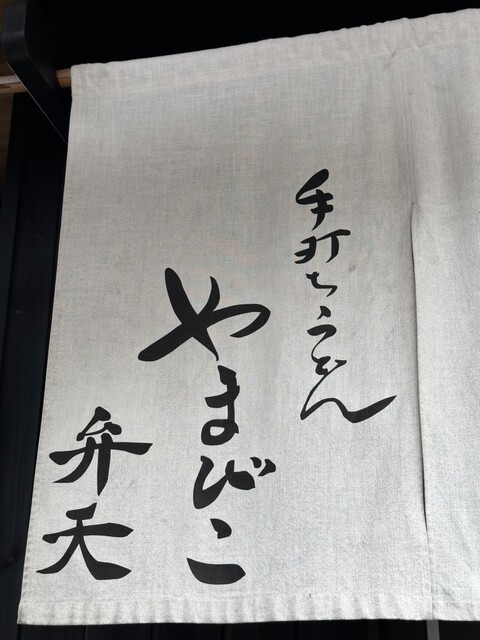 手打ちうどん
やまびこ
弁天